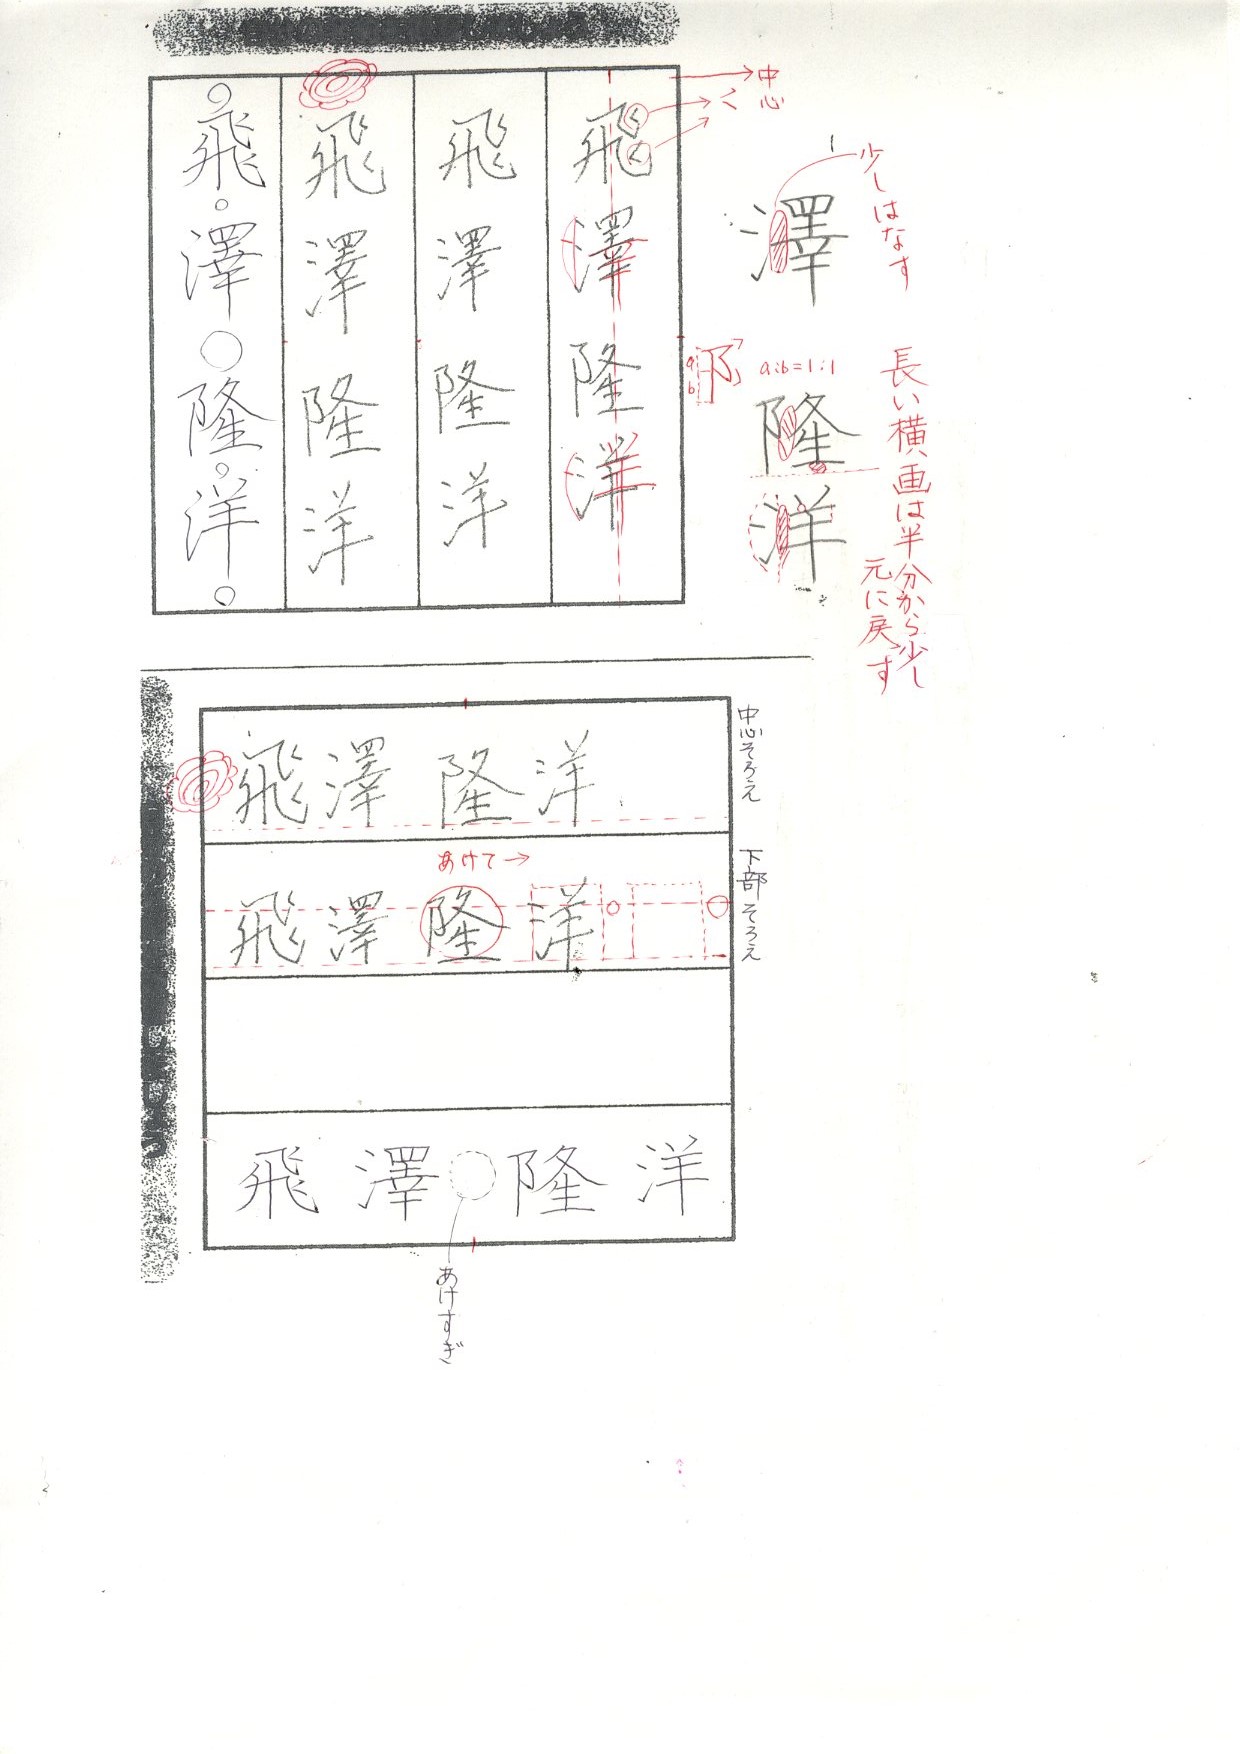 飛澤隆洋
飛澤隆洋
飛澤隆洋
飛澤隆洋
中心
く
澤
少しはなす
a
b
阝
a:b=1:1
隆
洋
長い横画は半分から少し
元に戻す
飛澤隆洋
中心そろえ
あけて→
飛澤隆洋
下部そろえ
飛澤隆洋
あけすぎ